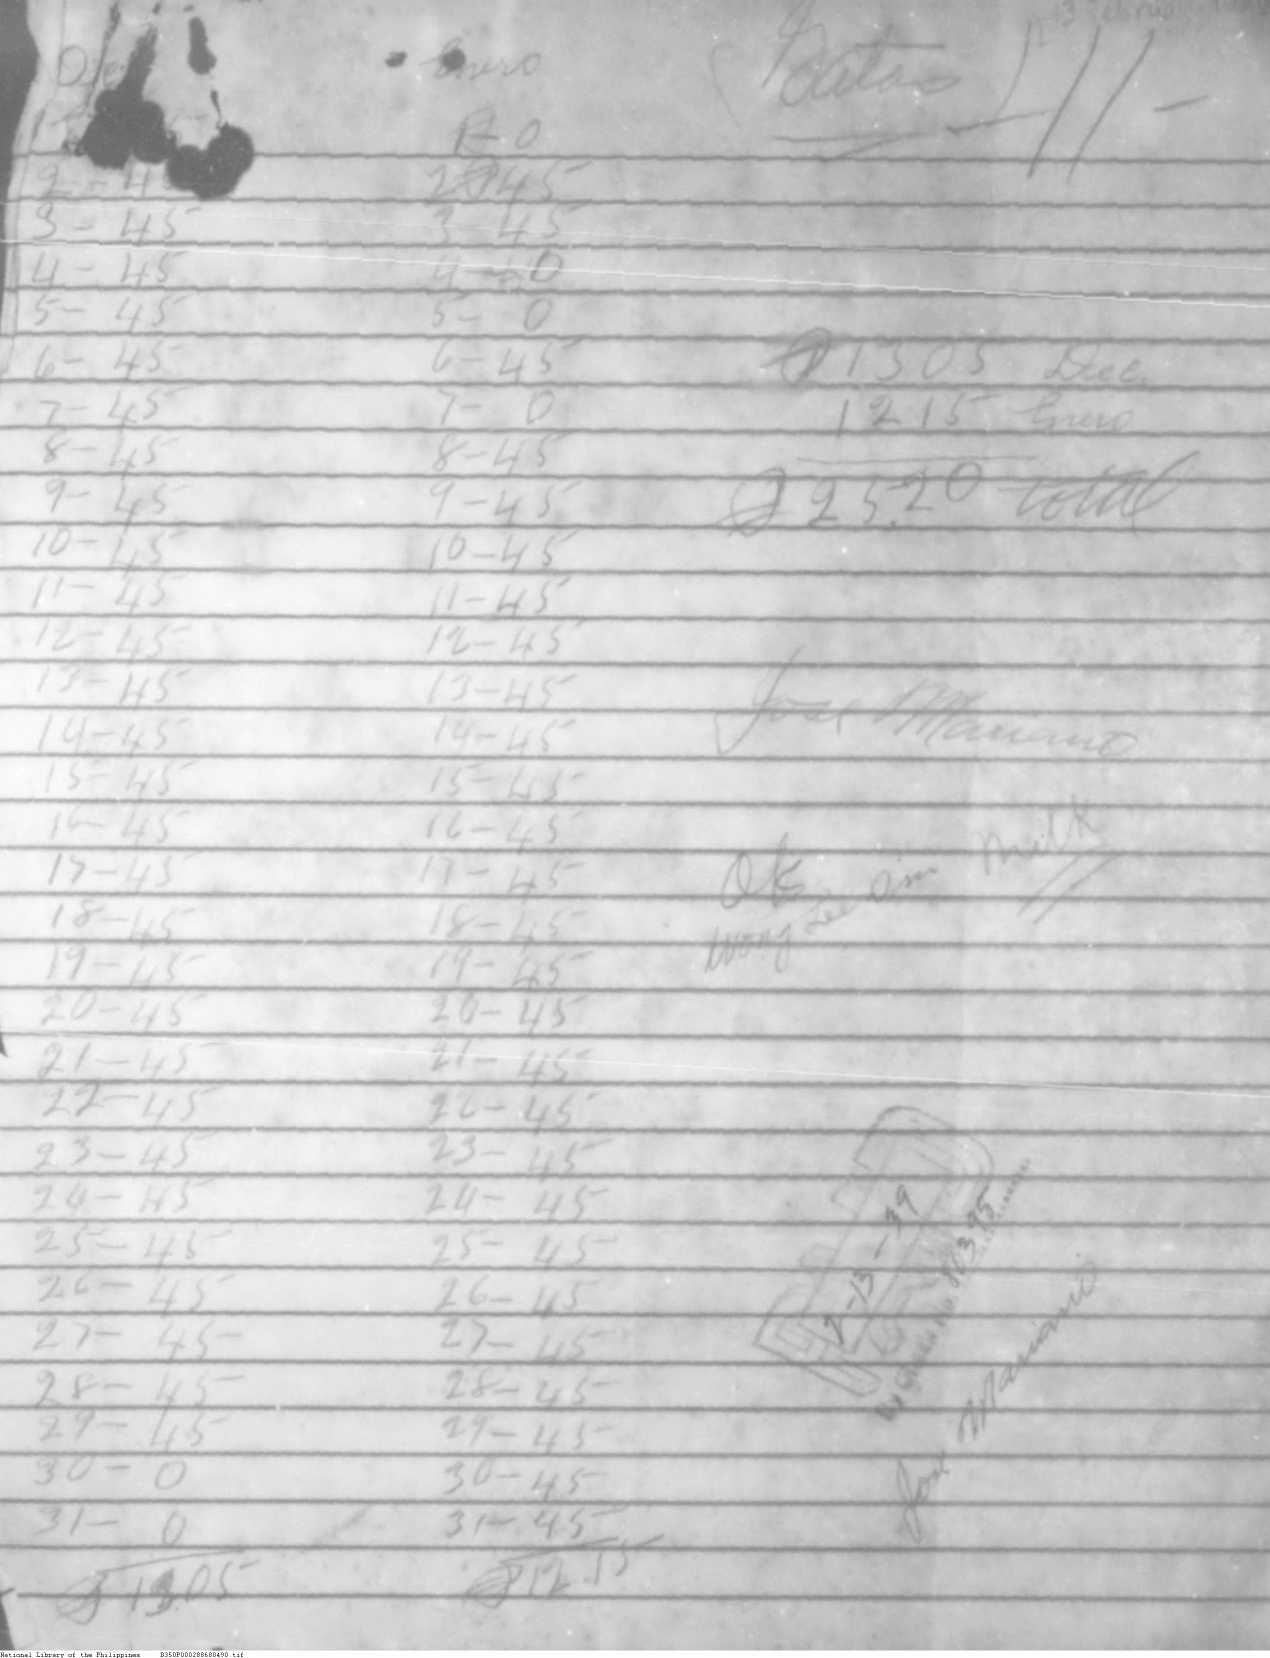 Enero
R - 0
2 - 45
2 - 45
3 - 45
3 - 45
4 - 45
4 - 0
5 - 45
5 - 0
6 - 45
6 - 45
7 - 45
7 - 0
8 - 45
8 - 45
9 - 45
9 - 45
10 - 45
10 - 45
11 - 45
11 - 45
12 - 45
12 - 45
13 - 45
13 - 45
14 - 45
14 - 45
15 - 45
15 - 45
16 - 45
16 - 45
17 - 45
17 - 45
18 - 45
18 - 45
19 - 45
19 - 45
20 - 45
20 - 45
21 - 45
21 - 45
22 - 45
22 - 45
23 - 45
23 - 45
24 - 45
24 - 45
25 - 45
25 - 45
26 - 45
26 - 45
27 - 45
27 - 45
28 - 45
28 - 45
29 - 45
29 - 45
30 - 0
30 - 45
31 - 0
31 - 45
₱ 13.05
₱ 12.15
₱ 1305 Dec.
1215 Enero
₱ 25.20 total
Jose Mariano
OK
Wong
Milk
2-13-39
80395
Jose Mariano
National Library of the Philippines D350P000288680490.tif